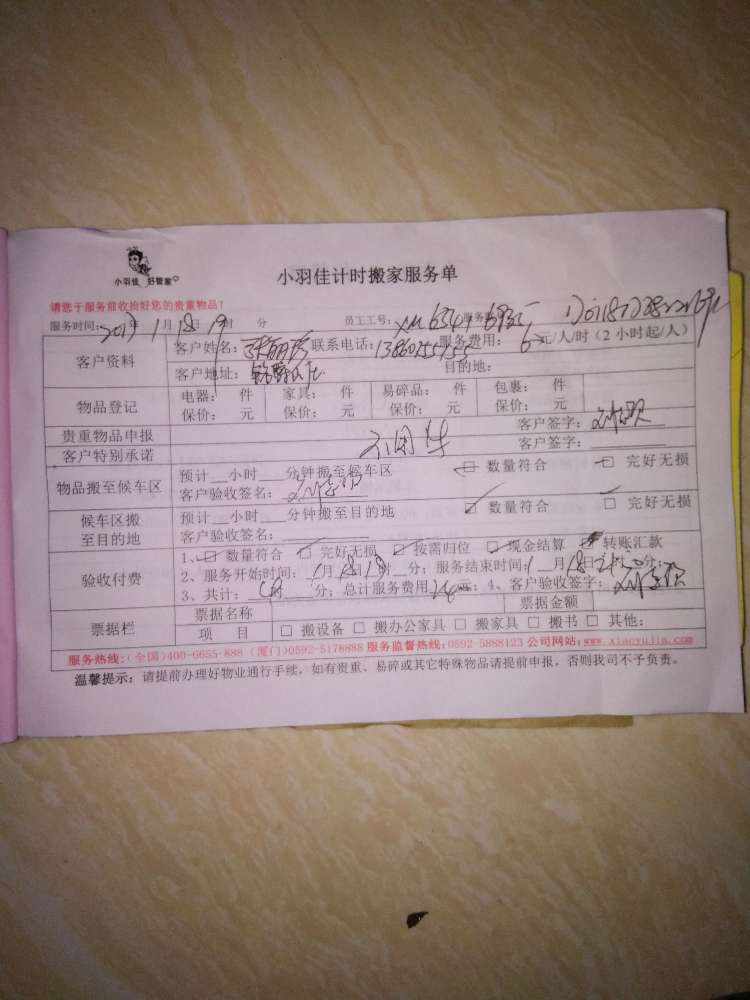 小羽佳 好管家
小羽佳计时搬家服务单
请您于服务前收拾好您的贵重物品！
服务时间：2017年1月18日19时 分 员工工号：XM6341
客户资料
客户姓名： 联系电话： 服务费用：6 元/人/时（2小时起/人）
客户地址： 目的地：
物品登记
电器： 件 家具： 件 易碎品： 件 包裹： 件
保价： 元 保价： 元 保价： 元 保价： 元
贵重物品申报 客户签字：
客户特别承诺 客户签字：
物品搬至候车区
预计 小时 分钟搬至候车区 数量符合 完好无损
客户验收签名：
候车区搬
至目的地
预计 小时 分钟搬至目的地 数量符合 完好无损
客户验收签名：
验收付费
1、 数量符合 完好无损 按需归位 现金结算 转账汇款
2、服务开始时间：1月18日 时 分；服务结束时间：1月18日 时 分；
3、共计： 时 分；总计服务费用 元；4、客户验收签字：
票据栏
票据名称 票据金额
项 目 □ 搬设备 □ 搬办公家具 □ 搬家具 □ 搬书 □ 其他：
服务热线：(全国)400-6655-888 (厦门)0592-5178888 服务监督热线：0592-5888123 公司网站：www.xiaoyujia.com
温馨提示：请提前办理好物业通行手续，如有贵重、易碎或其它特殊物品请提前申报，否则我司不予负责。